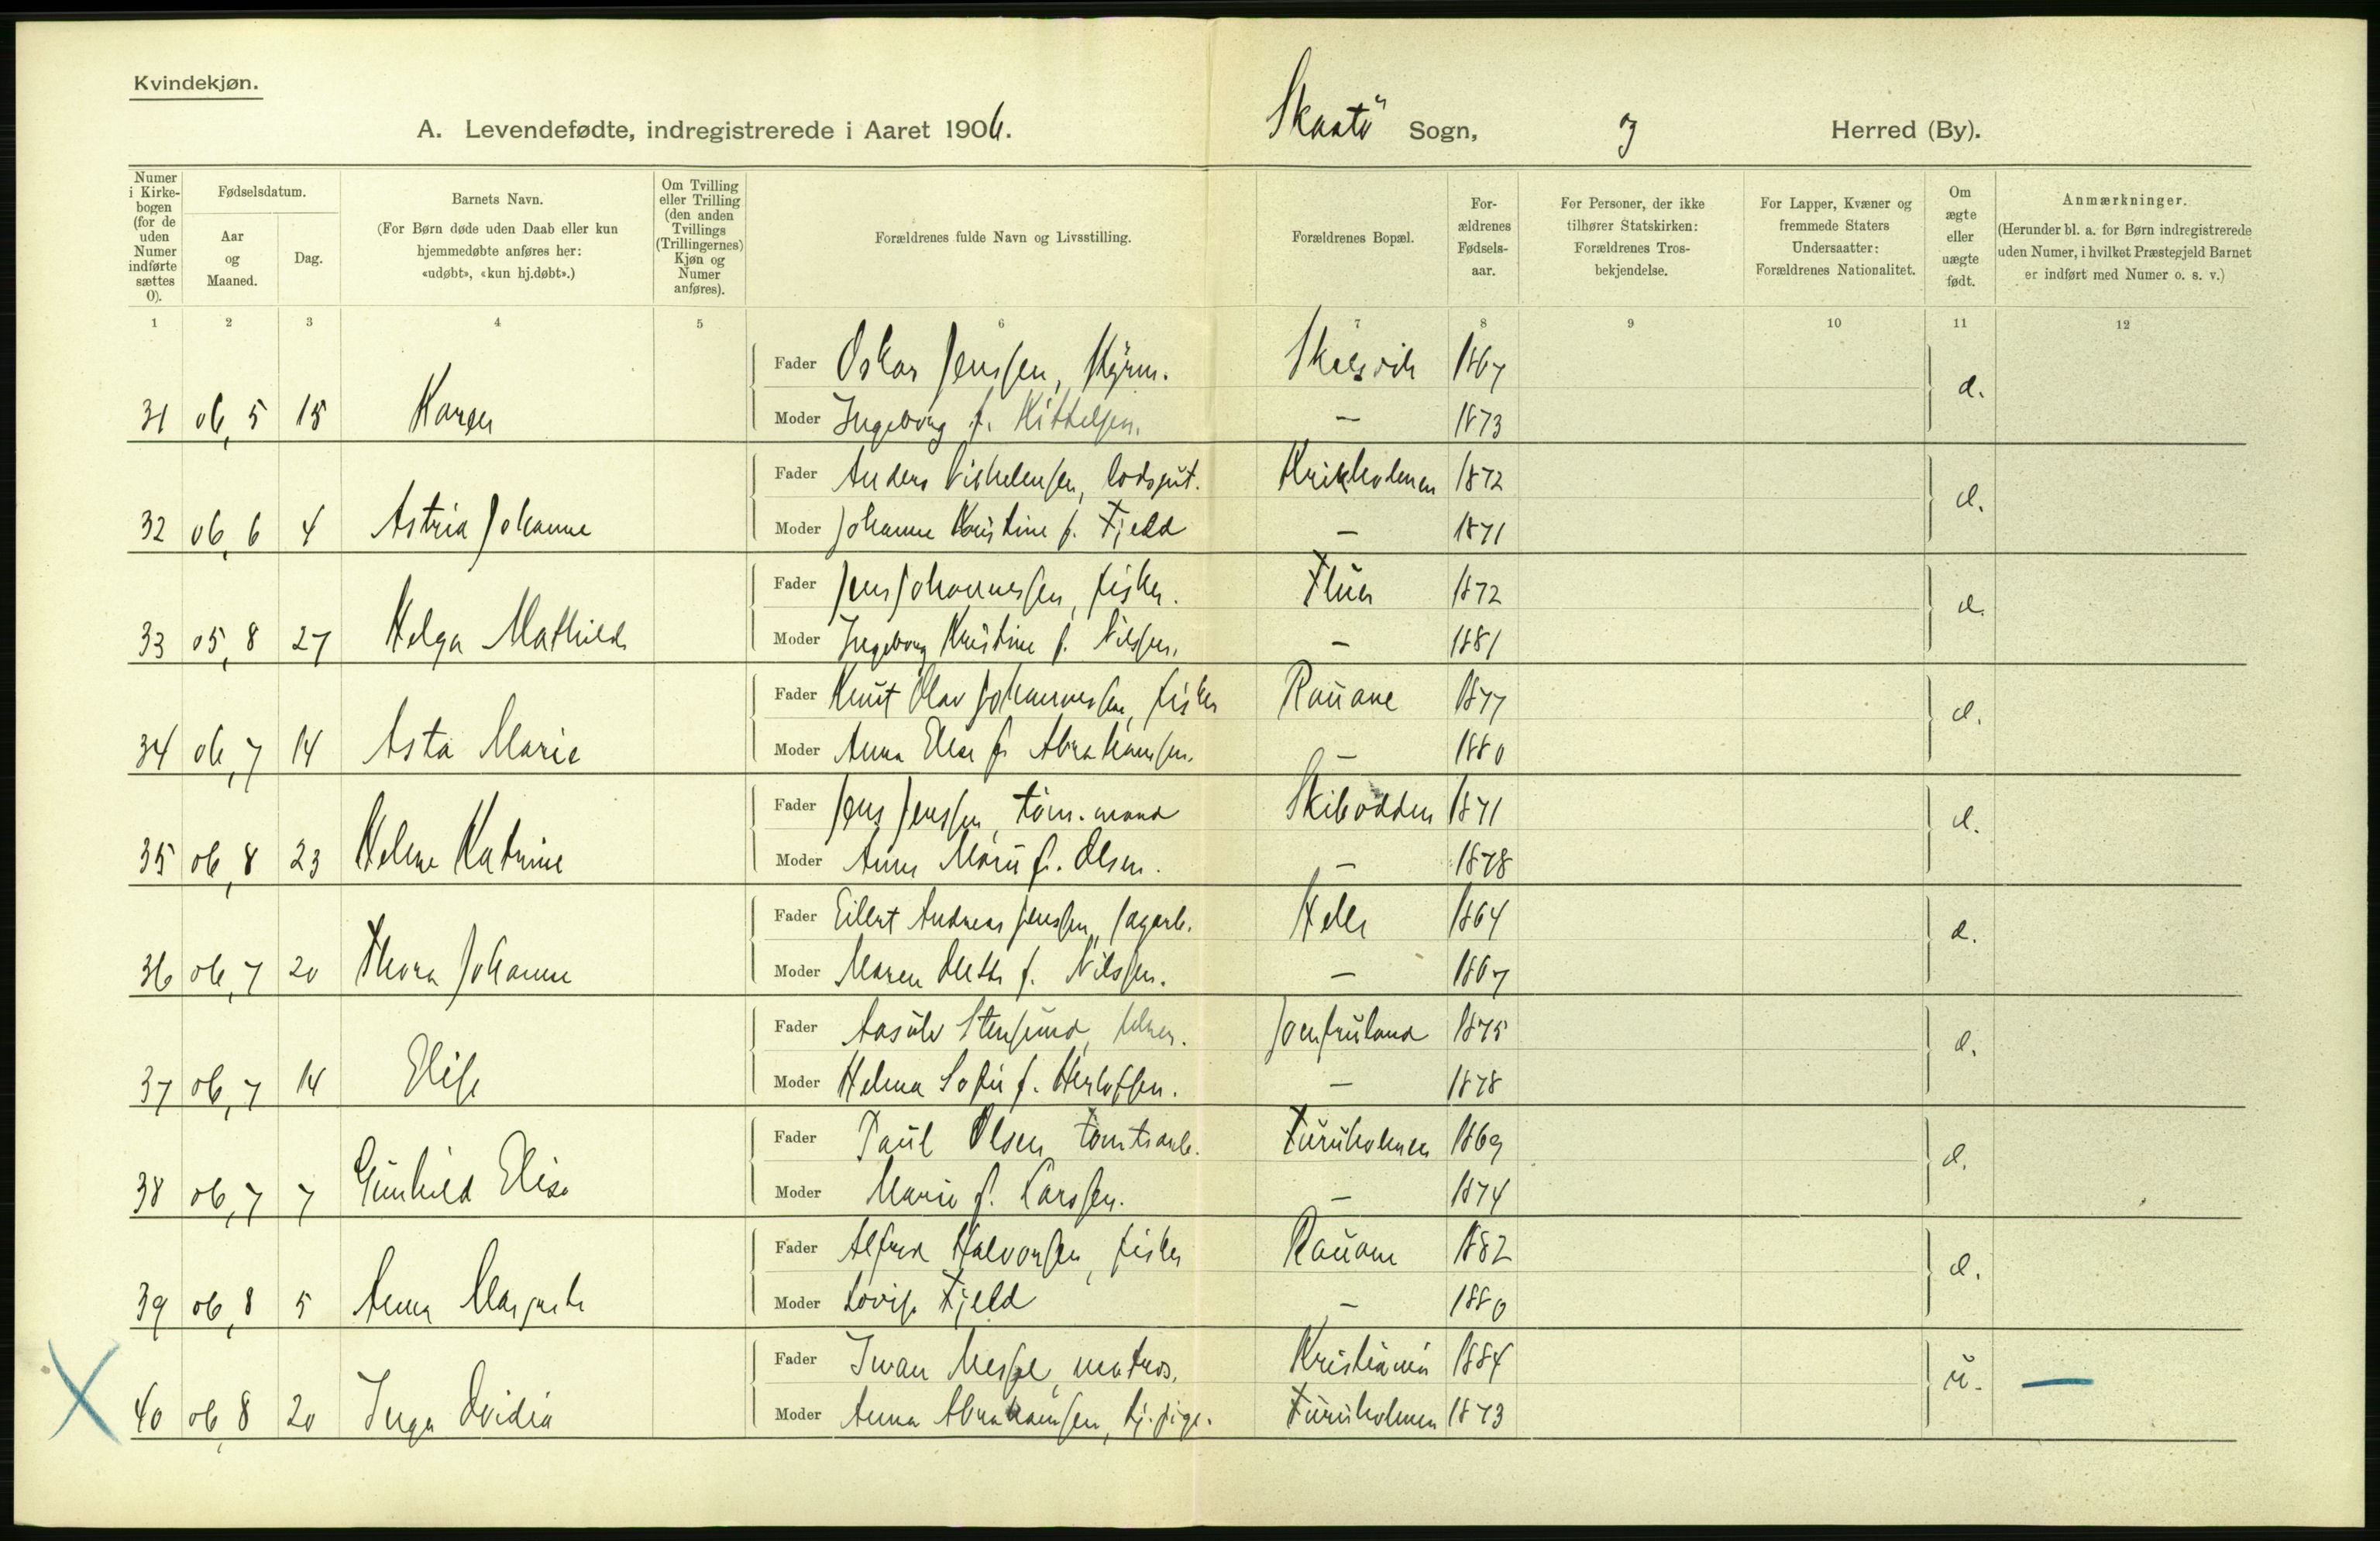 Kvindekjøn.
A. Levendefødte, indregistrerede i Aaret 1906. Skaatö Sogn, og Herred (By).
Numer i Kirkebogen (for de uden Numer indførte sættes 0).
Fødselsdatum.
Aar og Maaned.
Dag.
Barnets Navn.
(For Børn døde uden Daab eller kun hjemmedøbte anføres her: «udøbt», «kun hj.døbt».)
Om Tvilling eller Trilling (den anden Tvillings (Trillingernes) Kjøn og Numer anføres).
Forældrenes fulde Navn og Livsstilling.
Forældrenes Bopæl.
Forældrenes Fødselsaar.
For Personer, der ikke tilhører Statskirken: Forældrenes Trosbekjendelse.
For Lapper, Kvæner og fremmede Staters Undersaatter: Forældrenes Nationalitet.
Om ægte eller uægte født.
Anmærkninger.
(Herunder bl. a. for Børn indregistrerede uden Numer, i hvilket Præstegjeld Barnet er indført med Numer o. s. v.)
1 2 3 4 5 6 7 8 9 10 11 12
Fader Oskar Jenssen, Styrm. 1867
31 06, 5 15 Karen
Moder Ingeborg f. Kittelsen. — 1873
Fader Anders Vilhelmsen, Krikholmen 1872
32 06, 6 4 Astria Johanne
Moder Johanne Kristine f. Fjeld — 1871
Fader Jens Johannessen, fisker. 1872
33 05, 8 27 Helga Mathilde
Moder Ingeborg Kristine f. Nilssen. — 1881
Fader Knut Olav Johannessen, fisker Rauane 1877
34 06, 7 14 Asta Marie
Moder Anna Elise f. Abrahamsen. — 1880
Fader Jens Jenssen, töm.mand Skibodden 1871
35 06, 8 23 Helene Katrine
Moder Anne Marie f. Olsen. — 1878
Fader Eilert Andreas Jenssen, sagarb. Helle 1864
36 06, 7 20 Thora Johanne
Moder Maren f. Nilssen. — 1867
Fader Aasulv Stensund, Jomfruland 1875
37 06, 7 14 Elise
Moder Helma Sofie f. Herlofsen. — 1878
Fader Paul Olsen tomtearb. Furuholmen 1869
38 06, 7 7 Gunhild Elise
Moder Marie f. Larssen. — 1874
Fader Alfred Halvorsen, fisker Rauane 1882
39 06, 8 5 Anna Margrete
Moder Lovise Fjeld — 1880
Fader Iwan matros. Kristiania 1884 u. —
40 06, 8 20 Inga Ovidia
Moder Anna Abrahamsen, tj.pige. Furuholmen 1873